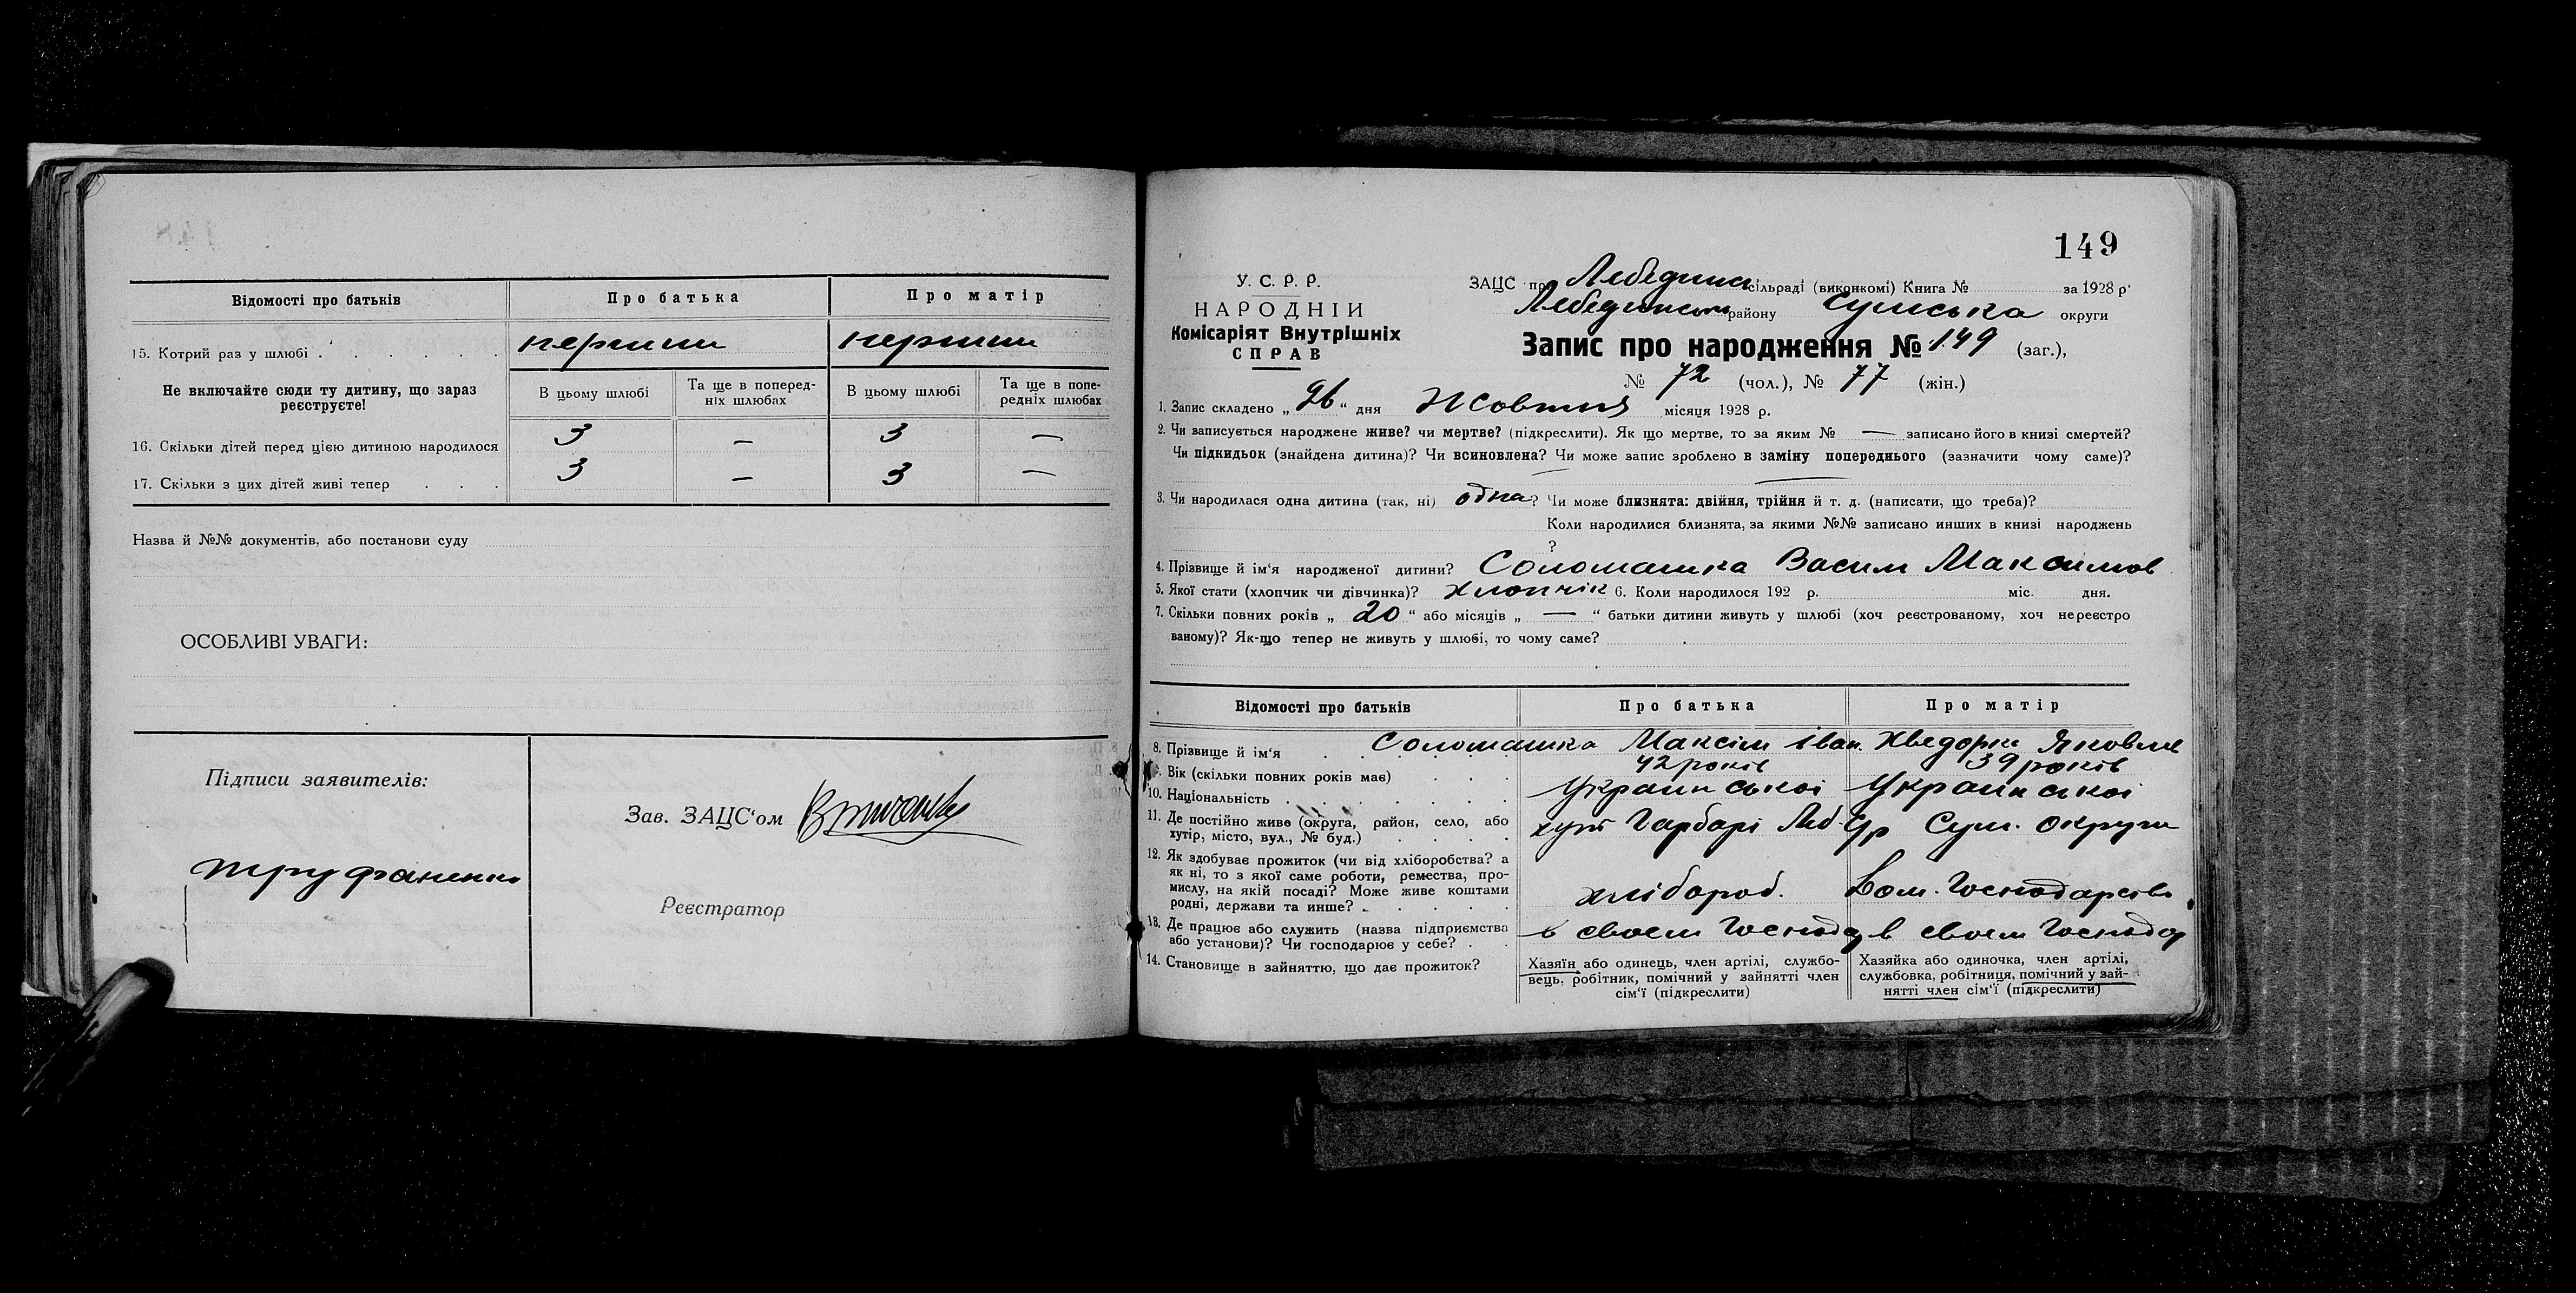 Відомості про батьків Про батька Про матір
15. Котрий раз у шлюбі перший перший
Не включайте сюди ту дитину, що зараз реєструєте!
В цьому шлюбі Та ще в поперед-
ніх шлюбах В цьому шлюбі Та ще в попе-
редніх шлюбах
16. Скільки дітей перед цією дитиною народилося 3 — 3 —
17. Скільки з цих дітей живі тепер 3 — 3 —
Назва й №№ документів, або постанови суду
ОСОБЛИВІ УВАГИ:
Підписи заявителів:
Труфаненко
Зав. ЗАЦС'ом
Реєстратор
149
У. С. Р. Р.
НАРОДНІЙ
Комісаріят Внутрішніх
СПРАВ
ЗАЦС при сільраді (виконкомі) Книга № за 1928 р.
району Сумська округи
Запис про народження № 149 (заг.),
№ 72 (чол.), № 77 (жін.)
1. Запис складено „26" дня Жовтня місяця 1928 р.
2. Чи записується народжене живе? чи мертве? (підкреслити). Як що мертве, то за яким № — записано його в книзі смертей?
Чи підкидьок (знайдена дитина)? Чи всиновлена? Чи може запис зроблено в заміну попереднього (зазначити чому саме)?
3. Чи народилася одна дитина (так, ні) одна? Чи може близнята: двійня, трійня й т. д. (написати, що треба)?
Коли народилися близнята, за якими №№ записано инших в книзі народжень
?
4. Прізвище й ім'я народженої дитини? Соломашка Васил Максимов
5. Якої стати (хлопчик чи дівчинка)? хлопчік 6. Коли народилося 192 р. міс. дня.
7. Скільки повних років „20" або місяців „—" батьки дитини живуть у шлюбі (хоч реєстрованому, хоч нереєстро
ваному)? Як-що тепер не живуть у шлюбі, то чому саме?
Відомості про батьків Про батька Про матір
8. Прізвище й ім'я Соломашка Максім Іван. Хведорка Яковлев
9. Вік (скільки повних років має) 42 років 39 років
10. Національність Українськоі Українськоі
11. Де постійно живе (округа, район, село, або
хутір, місто, вул., № буд.) хут Гарбарі Леб. др Сум. округи
12. Як здобуває прожиток (чи від хліборобства? а
як ні, то з якої саме роботи, ремества, про-
мислу, на якій посаді? Може живе коштами
родні, держави та инше? хлібороб. Дом. Господарство
13. Де працює або служить (назва підприємства
або установи)? Чи господарює у себе? в своем Господ в своем Господ
14. Становище в зайняттю, що дає прожиток?
Хазяїн або одинець, член артілі, службо-
вець, робітник, помічний у зайнятті член
сім'ї (підкреслити)
Хазяйка або одиночка, член артілі,
службовка, робітниця, помічний у зай-
нятті член сім'ї (підкреслити)